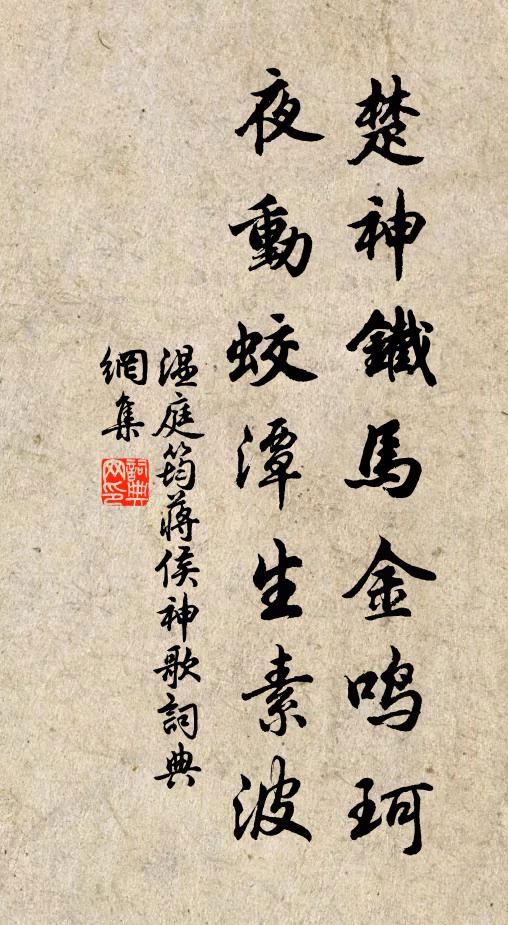 楚神鐵馬金鳴珂
夜動蛟潭生素波
溫庭筠蔣侯神歌詞典
網集
詞典
网印